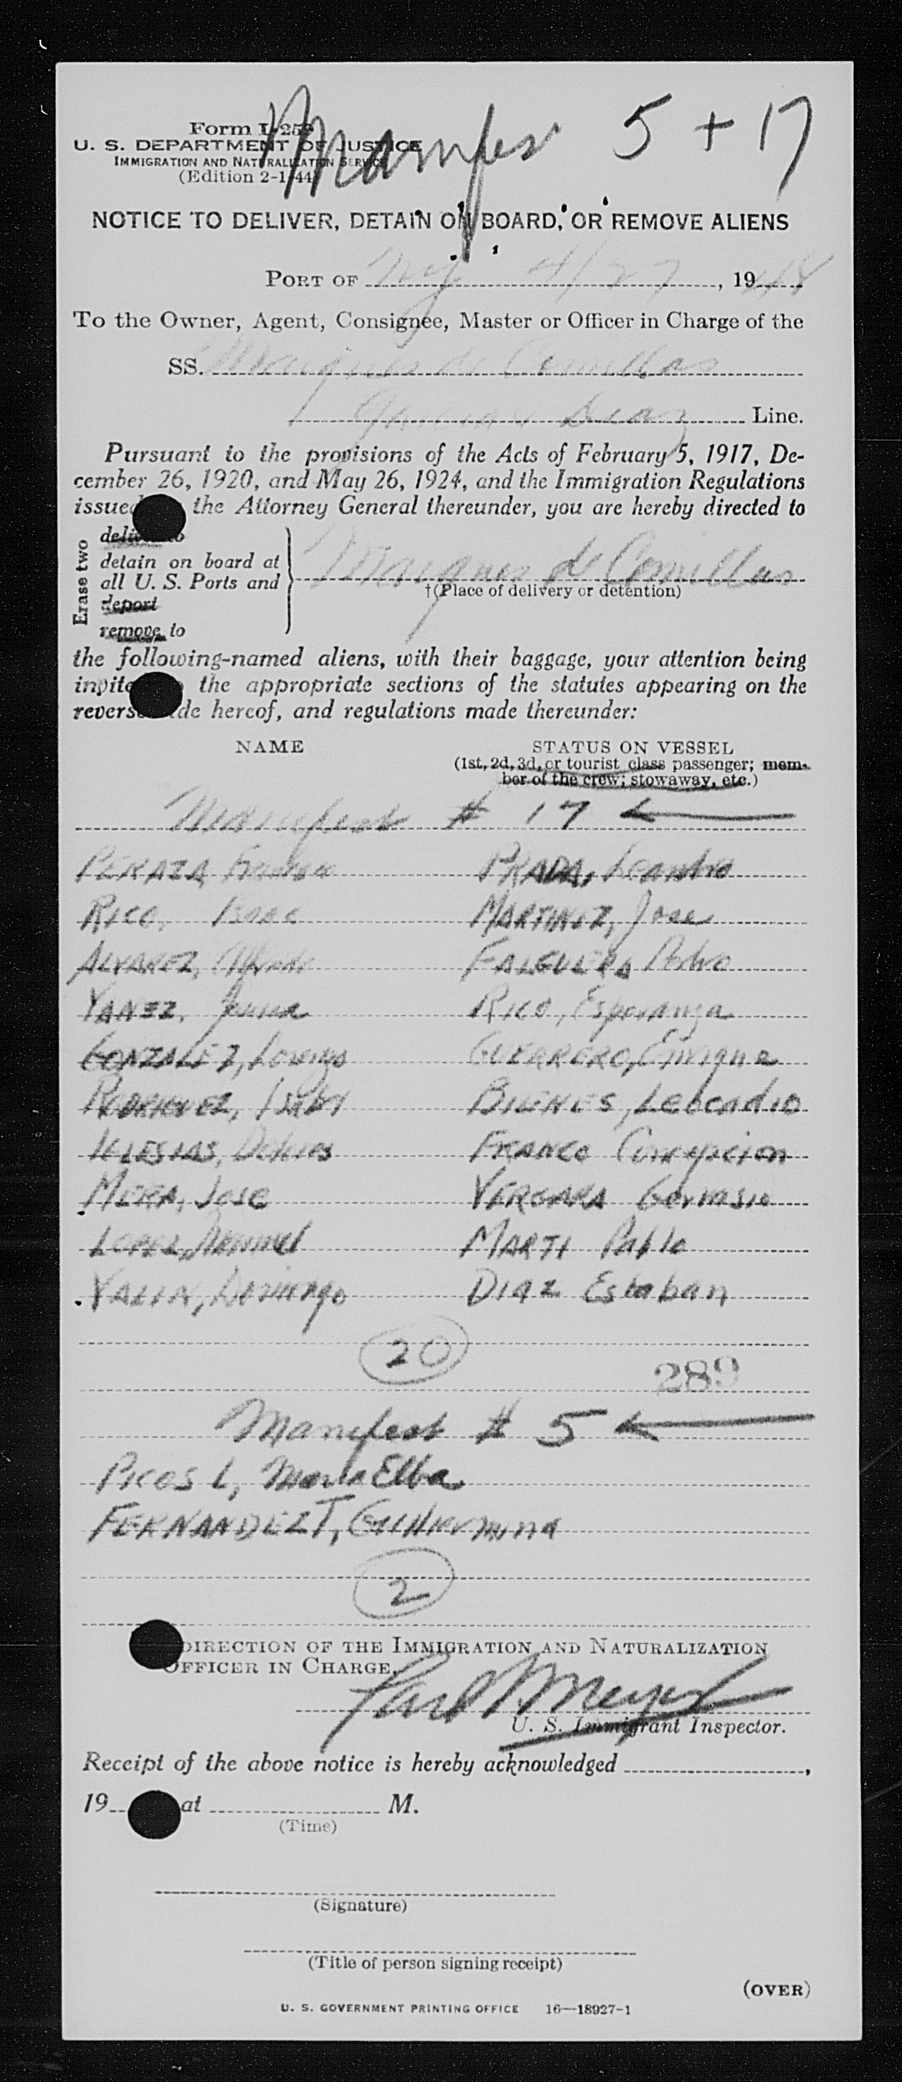 Manifes 5 + 17
Form I-259
U. S. DEPARTMENT OF JUSTICE
IMMIGRATION AND NATURALIZATION SERVICE
(Edition 2-1-44)
NOTICE TO DELIVER, DETAIN ON BOARD, OR REMOVE ALIENS
PORT OF NY 4/27, 1948
To the Owner, Agent, Consignee, Master or Officer in Charge of the
SS. Marques de Comillas
Garcia & Diaz Line.
Pursuant to the provisions of the Acts of February 5, 1917, De-
cember 26, 1920, and May 26, 1924, and the Immigration Regulations
issued the Attorney General thereunder, you are hereby directed to
Erase two
deliver to
detain on board at
all U. S. Ports and
deport
remove to
Marques de Comillas
†(Place of delivery or detention)
the following-named aliens, with their baggage, your attention being
invited the appropriate sections of the statutes appearing on the
reverse side hereof, and regulations made thereunder:
NAME STATUS ON VESSEL
(1st, 2d, 3d, or tourist class passenger; mem-
ber of the crew; stowaway, etc.)
Manifest # 17
PERAZA, PRADA, Leandro
RICO, Isaac MARTINEZ, Jose
ALVAREZ, Alfredo FALGUERA Pedro
YANEZ, RICO, Esperanza
GONZALEZ, GUERRERO, Enrique
RODRIGUEZ, BIENES, Leocadio
IGLESIAS, Dolores FRANCO Concepcion
MERA, Jose VERGARA Gervasio
LOPEZ, Manuel MARTI Pablo
Domingo DIAZ Estaban
20
289
Manifest # 5
PICOS L, Maria Elba
FERNANDEZ T, Guillermina
2
DIRECTION OF THE IMMIGRATION AND NATURALIZATION
OFFICER IN CHARGE,
Meyer
U. S. Immigrant Inspector.
Receipt of the above notice is hereby acknowledged ,
19 at M.
(Time)
(Signature)
(Title of person signing receipt)
(OVER)
U. S. GOVERNMENT PRINTING OFFICE 16—18927-1